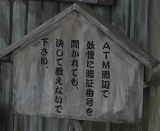 ATM周辺で
妖怪に暗証番号を
聞かれても、
決して教えないで
下さい。